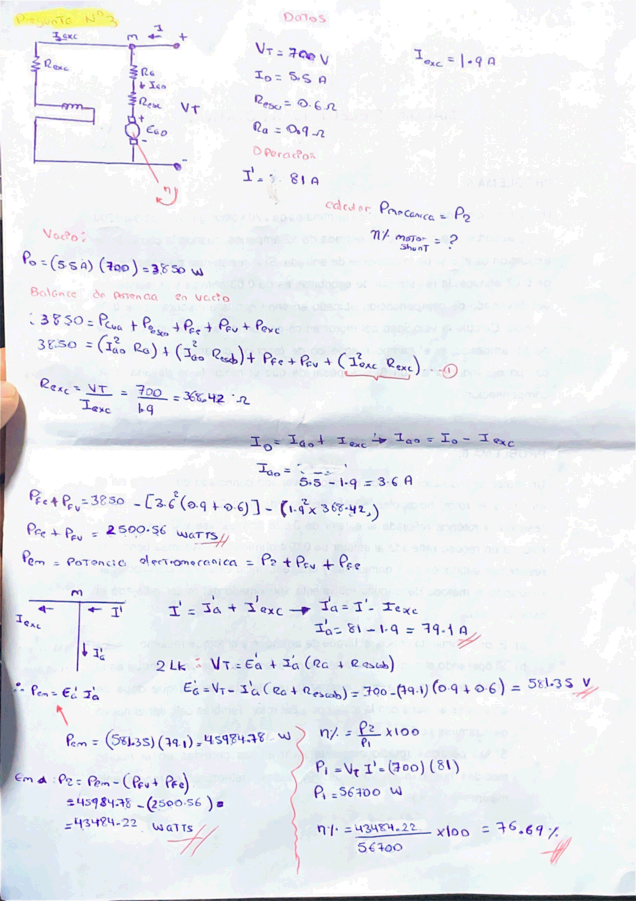 Pregunta Nº3
DATOS
Iexc M I +
Rexc
Ra
Iao
Resc
VT
+
Eao
-
-
n
VT = 700 V
Iexc = 1.9 A
Io = 5.5 A
Resc = 0.6 Ω
Ra = 0.9 Ω
Operación
I' = 81 A
calcular Pmecanica = P2
n% motor shunt = ?
Vacio:
Po = (5.5 A) (700) = 3850 W
Balance de potencia en vacio
: 3850 = Pcua + Pesco + PFe + PFv + Pexc
3850 = (I²ao Ra) + (I²ao Rescb) + PFe + PFv + (I²exc Rexc) ... ①
Rexc = VT / Iexc = 700 / 1.9 = 368.42 Ω
Io = Iao + Iexc → Iao = Io - Iexc
Iao = 5.5 - 1.9 = 3.6 A
PFe + PFv = 3850 - [3.6² (0.9 + 0.6)] - (1.9² x 368.42)
PFe + PFv = 2500.56 WATTS
Pem = Potencia electromecanica = P2 + PFv + PFe
M
I'
Iexc
I'a
I' = I'a + I'exc → I'a = I' - Iexc
I'a = 81 - 1.9 = 79.1 A
2 LK : VT = E'a + I'a (Ra + Rescb)
∴ Pem = E'a I'a
E'a = VT - I'a (Ra + Rescob) = 700 - (79.1) (0.9 + 0.6) = 581.35 V
Pem = (581.35) (79.1) = 45984.78 W
n% = P2 / P1 x100
P1 = VT I' = (700) (81)
P1 = 56700 W
Em α : P2 = Pem - (PFv + PFe)
= 45984.78 - (2500.56)
= 43484.22 WATTS
n% = 43484.22 / 56700 x100 = 76.69 %